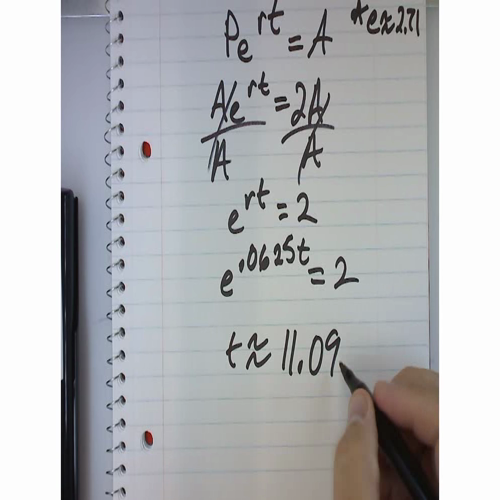 Pe^rt = A *e≈2.71
Ae^rt = 2A
A A
e^rt = 2
e^.0625t = 2
t ≈ 11.09